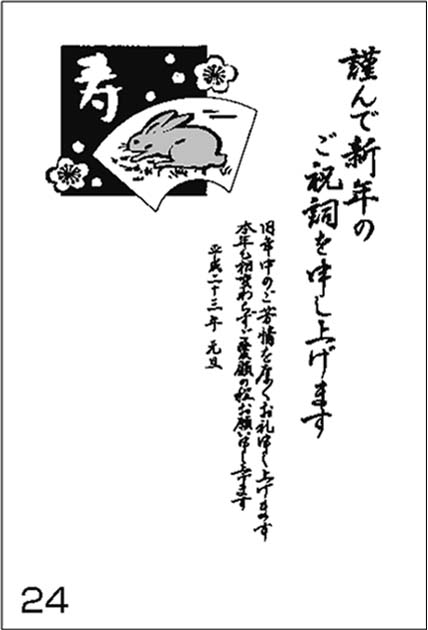 寿
謹んで新年の
ご祝詞を申し上げます
旧年中のご芳情を厚くお礼申し上げます
本年も相変わらずご愛顧の程お願い申し上げます
平成二十三年 元旦
24